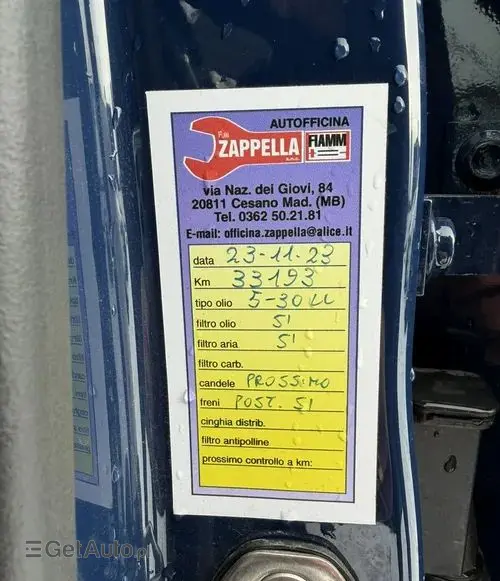 AUTOFFICINA
F.lli ZAPPELLA s.n.c. FIAMM
via Naz. dei Giovi, 84
20811 Cesano Mad. (MB)
Tel. 0362 50.21.81
E-mail: officina.zappella@alice.it
data 23-11-23
Km 33193
tipo olio 5-30 LL
filtro olio SI
filtro aria SI
filtro carb.
candele PROSSIMO
freni POST. SI
cinghia distrib.
filtro antipolline
prossimo controllo a km:
GetAuto